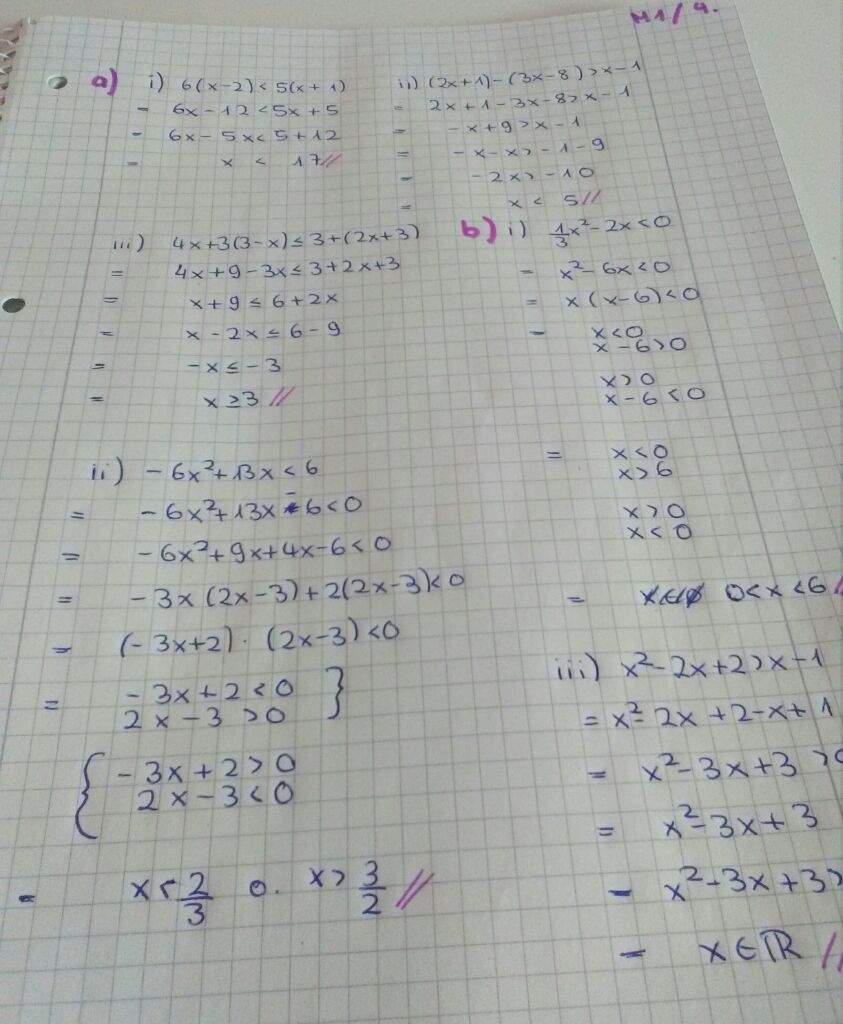 M1/9.
a) i) 6(x-2)<5(x+1)
= 6x-12<5x+5
= 6x-5x<5+12
= x < 17//
ii) (2x+1)-(3x-8)>x-1
= 2x+1-3x-8>x-1
= -x+9>x-1
= -x-x>-1-9
= -2x>-10
= x < 5//
iii) 4x+3(3-x)≤3+(2x+3)
= 4x+9-3x≤3+2x+3
= x+9≤6+2x
= x-2x≤6-9
= -x≤-3
= x≥3//
b) i) 1/3x²-2x<0
= x²-6x<0
= x(x-6)<0
= x<0
x-6>0
x>0
x-6<0
= x<0
x>6
x>0
x<0
= 0<x<6//
ii) -6x²+13x<6
= -6x²+13x-6<0
= -6x²+9x+4x-6<0
= -3x(2x-3)+2(2x-3)<0
= (-3x+2)·(2x-3)<0
= -3x+2<0 }
2x-3>0
{ -3x+2>0
2x-3<0
= x<2/3 o. x>3/2//
iii) x²-2x+2>x-1
= x²-2x+2-x+1
= x²-3x+3>0
= x²-3x+3
= x²-3x+3>
= x∈ℝ//